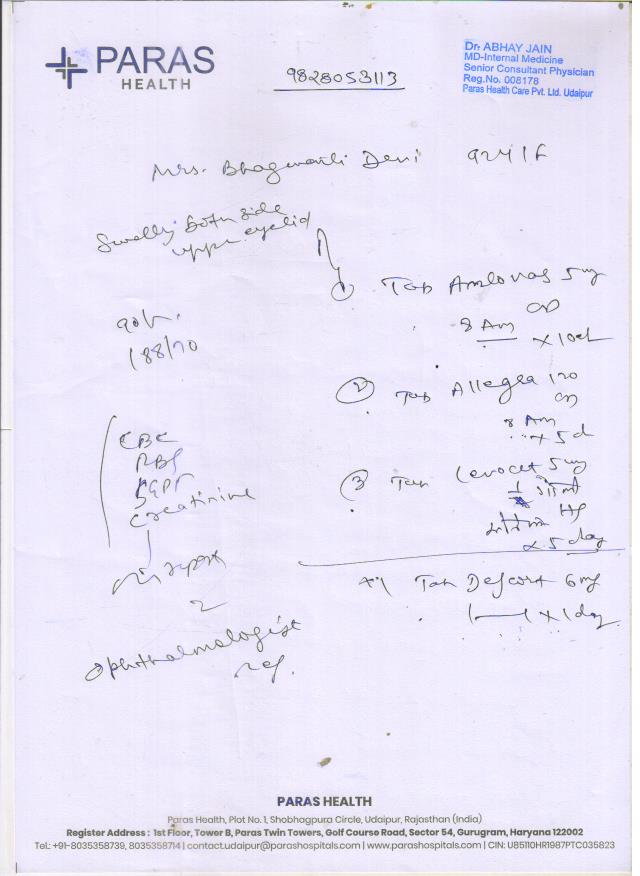 PARAS
HEALTH
9828053113
Dr. ABHAY JAIN
MD-Internal Medicine
Senior Consultant Physician
Reg.No. 008178
Paras Health Care Pvt. Ltd. Udaipur
Mrs. Bhagwanti Devi 92y/F
Swelling both side
upper eyelid
① Tab Amlovas 5 mg
OD
8 Am
x 10d
188/70
② Tab Allegra 120
OD
8 Am
x 5d
CBC
RBS
SGPT
Creatinine
③ Tab Levocet 5 mg
HS
x 5 day
4) Tab Defcort 6 mg
1——1 x 1 day
Ophthalmologist
ref.
PARAS HEALTH
Paras Health, Plot No. 1, Shobhagpura Circle, Udaipur, Rajasthan (India)
Register Address : 1st Floor, Tower B, Paras Twin Towers, Golf Course Road, Sector 54, Gurugram, Haryana 122002
Tel.: +91-8035358739, 8035358714 | contact.udaipur@parashospitals.com | www.parashospitals.com | CIN: U85110HR1987PTC035823